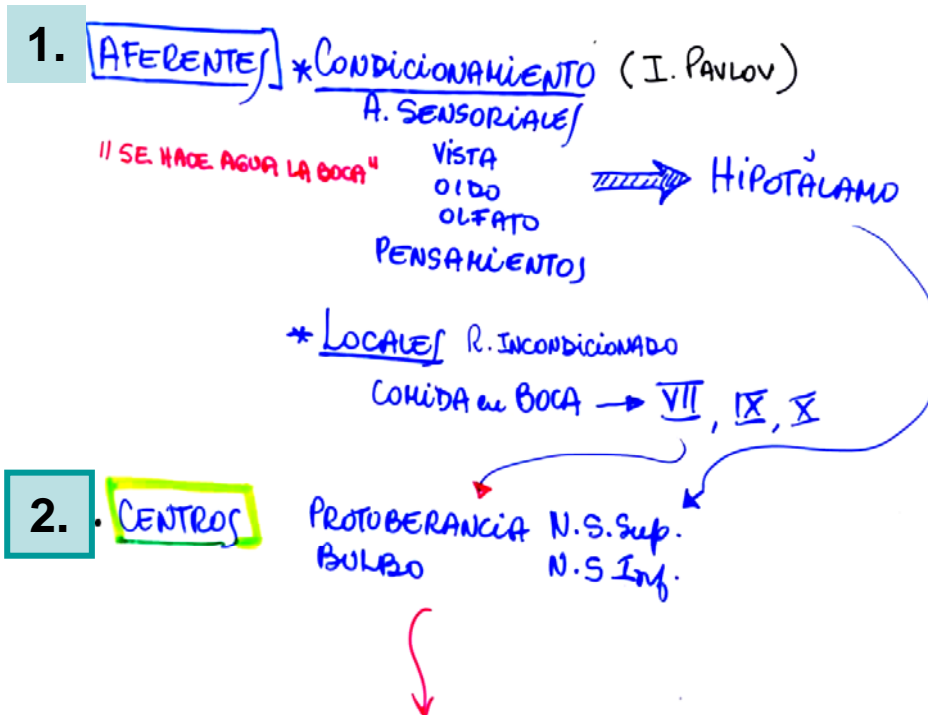 1. AFERENTES * CONDICIONAMIENTO (I. PAVLOV)
A. SENSORIALES
"SE HACE AGUA LA BOCA"
VISTA
OIDO
OLFATO
PENSAMIENTOS
HIPOTÁLAMO
* LOCALES R. INCONDICIONADO
COMIDA en BOCA → VII, IX, X
2. . CENTROS PROTUBERANCIA N.S. Sup.
BULBO N.S Inf.